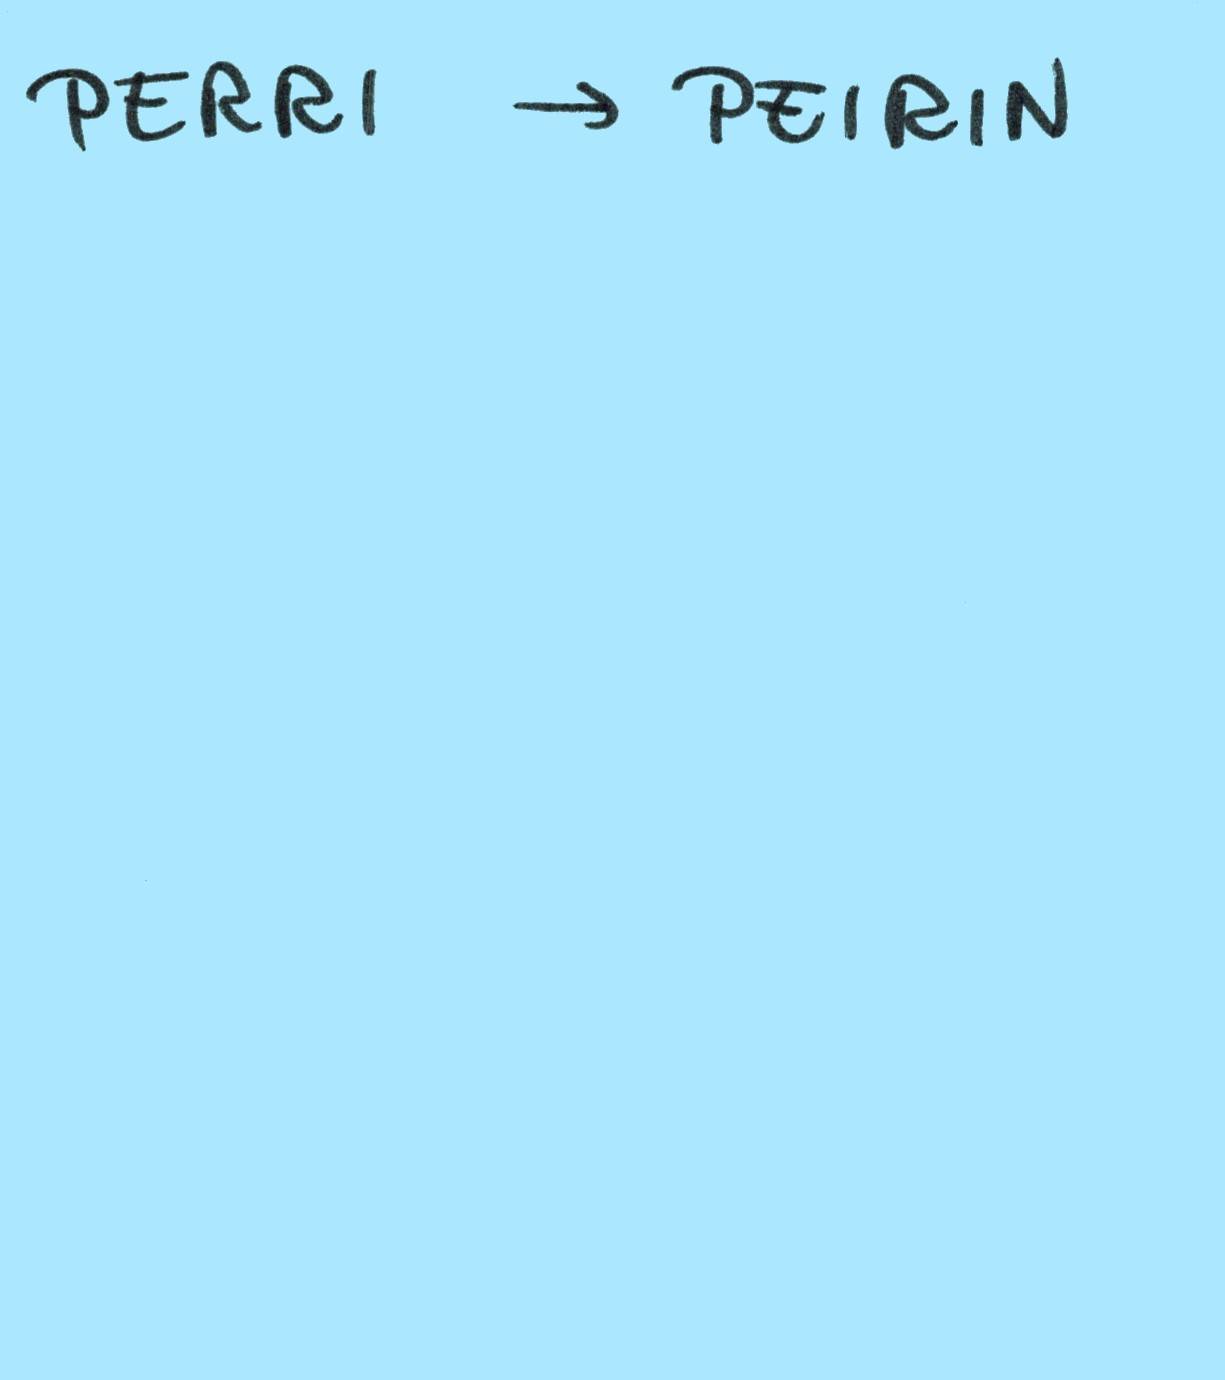 PERRI → PEIRIN